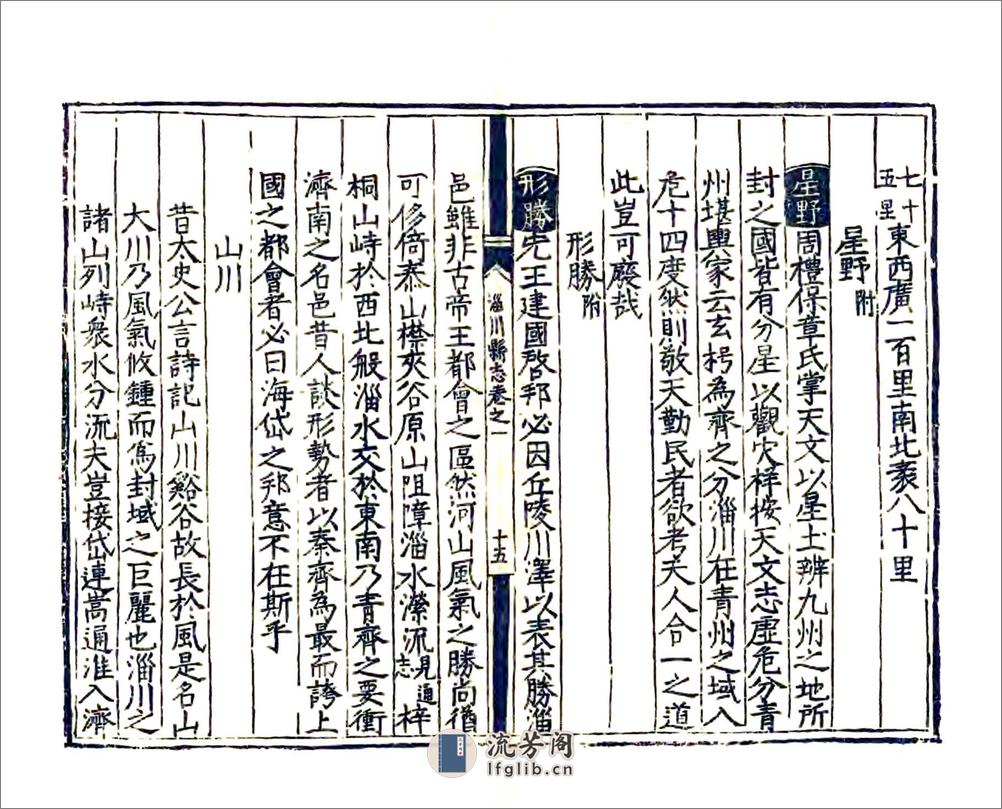 七十五里東西廣一百里南北袤八十里
星野附
星野周禮保章氏掌天文以星土辨九州之地所
封之國皆有分星以觀灾祥按天文志虛危分青
州堪輿家云玄枵為齊之分淄川在青州之域入
危十四度然則敬天勤民者欲考天人合一之道
此豈可廢哉
形勝附
形勝先王建國啓邦必因丘陵川澤以表其勝淄
淄川縣志卷之一 十五
邑雖非古帝王都會之區然河山風氣之勝尚猶
可侈倚泰山襟夾谷原山阻障淄水濚流見通志梓
桐山峙於西北般淄水交於東南乃青齊之要衝
濟南之名邑昔人談形勢者以秦齊為最而誇上
國之都會者必曰海岱之邦意不在斯乎
山川
昔太史公言詩記山川谿谷故長於風是名山
大川乃風氣攸鍾而為封域之巨麗也淄川之
諸山列峙衆水分流夫豈接岱連嵩通淮入濟
流芳阁
lfglib.cn